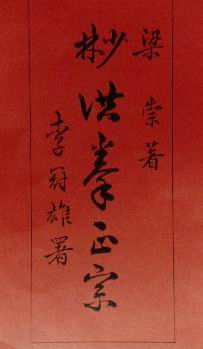 梁崇著
少林
洪拳正宗
李冠雄署